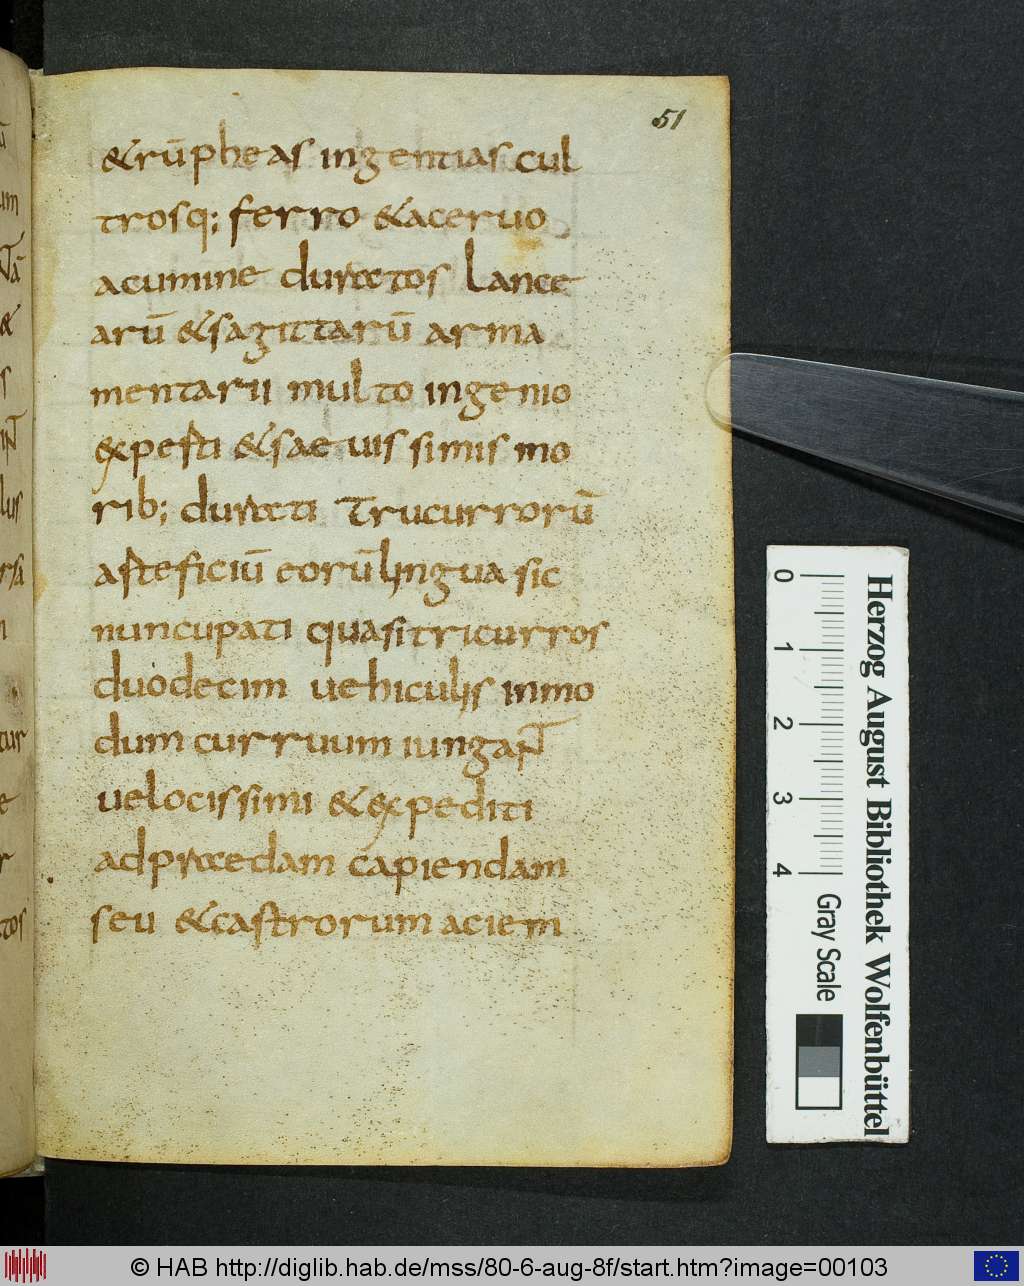 51
&rū pheas ingentias cul
trosq; ferro &aceruo
acumine duratos lance
arū &sagittarū arma
mentarii multo ingenio
expesti &saeuissimis mo
rib; durati Trucurrorū
asteficiū eorū lingua sic
nuncupati quasi tricurros
duodecim uehiculis inmo
dum curruum iungaNT
uelocissimi &expediti
ad praedam capiendam
seu &castrorum aciem
0 1 2 3 4
Gray Scale
Herzog August Bibliothek Wolfenbüttel
© HAB http://diglib.hab.de/mss/80-6-aug-8f/start.htm?image=00103